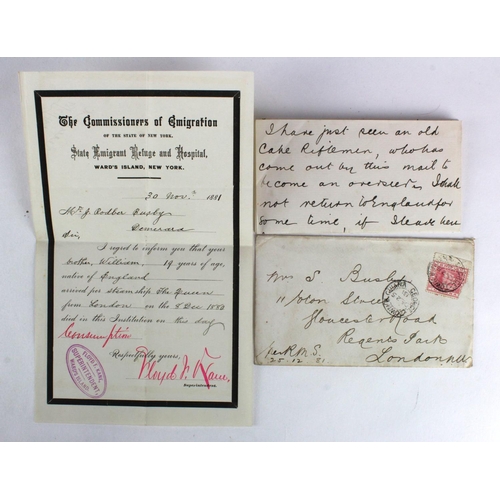 The Commissioners of Emigration
OF THE STATE OF NEW YORK.
State Emigrant Refuge and Hospital,
WARD'S ISLAND, NEW YORK.
30 Nov. 1881
Mr. J. Busby
Demerara
Sir,
I regret to inform you that your
brother, William, 19 years of age,
native of England
arrived per steamship The Queen
from London on the 8 Dec 1880
died in this Institution on this day
Consumption
Respectfully yours,
Superintendent.
SUPERINTENDENT,
WARD'S ISLAND.
I have just seen an old
Cake Riflemen, who has
come out by this mail to
become an overseer, I shall
not return to England for
some time, if I leave here
Mrs S Busby
11 Street
Gloucester Road
Regents Park
London NW
per R.M.S.
25.12.81